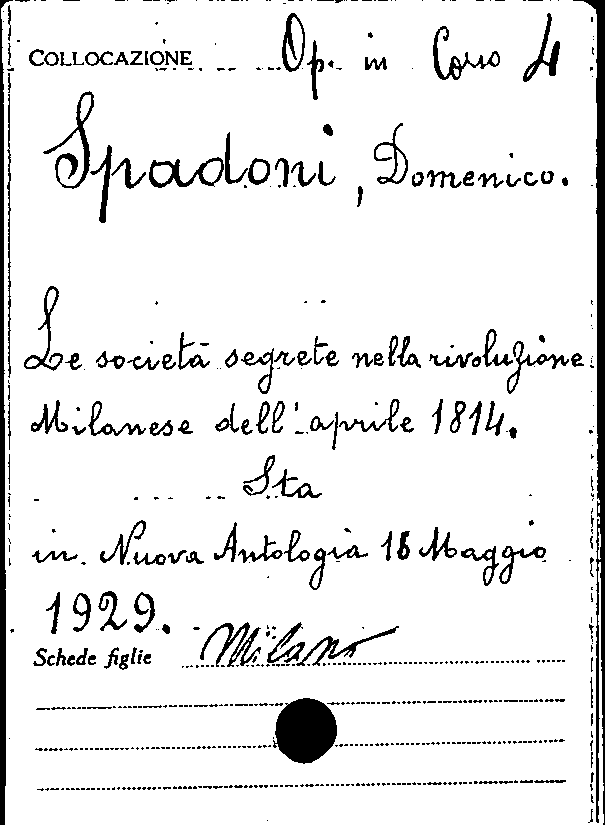 COLLOCAZIONE Op. in Corso 4
Spadoni, Domenico.
Le società segrete nella rivoluzione
Milanese dell'aprile 1814.
Sta
in Nuova Antologia 16 Maggio
1929.
Schede figlie Milano